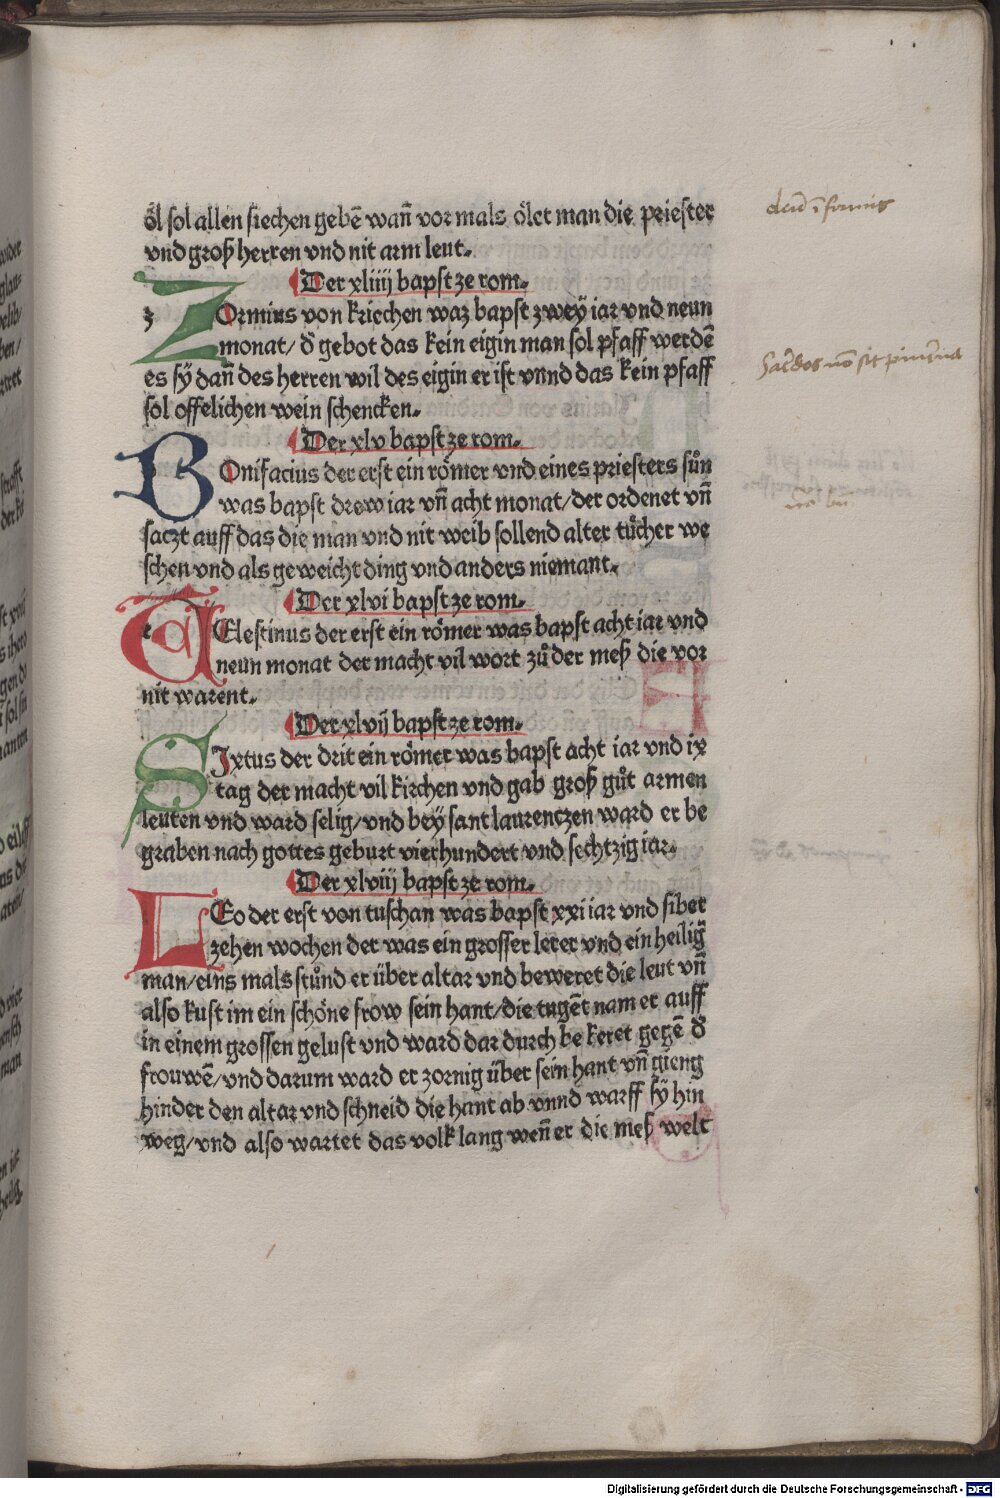 öl sol allen siechen gebē wañ vor mals ölet man die priester
vnd groß herren vnd nit arm leut.
Der xliiij bapst ze rom.
ZOrmius von kriechen waz bapst zweÿ iar vnd neun
monat/ d̄ gebot das kein eigin man sol pfaff werdē
es sÿ dañ des herren wil des eigin er ist vnnd das kein pfaff
sol offelichen wein schencken.
Der xlv bapst ze rom.
BOnifacius der erst ein römer vnd eines priesters sůn
was bapst drew iar vñ acht monat/ der ordenet vñ
saczt auff das die man vnd nit weib sollend alter tücher we
schen vnd als geweicht ding vnd anders niemant.
Der xlvi bapst ze rom.
CElestinus der erst ein römer was bapst acht iar vnd
neun monat der macht vil wort zů der meß die vor
nit warent.
Der xlvij bapst ze rom.
SIxtus der drit ein römer was bapst acht iar vnd ix
tag der macht vil kirchen vnd gab groß gůt armen
leuten vnd ward selig/ vnd beÿ sant laurentzen ward er be
graben nach gottes geburt vierhundert vnd sechtzig iar.
Der xlviij bapst ze rom.
LEo der erst von tuschan was bapst xxi iar vnd siber
zehen wochen der was ein grosser lerer vnd ein heiliḡ
man/ eins mals stůnd er über altar vnd beweret die leut vñ
also kust im ein schöne frow sein hant/ die tugēt nam er auff
in einem grossen gelust vnd ward dar durch be keret gegē d̄
frouwē/ vnd darum ward er zornig über sein hant vñ gieng
hinder den altar vnd schneid die hant ab vnnd warff sÿ hin
weg/ vnd also wartet das volk lang weñ er die meß welt
Digitalisierung gefördert durch die Deutsche Forschungsgemeinschaft - DFG